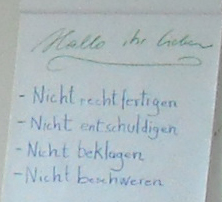 Hallo ihr Lieben
- Nicht rechtfertigen
- Nicht entschuldigen
- Nicht beklagen
- Nicht beschweren